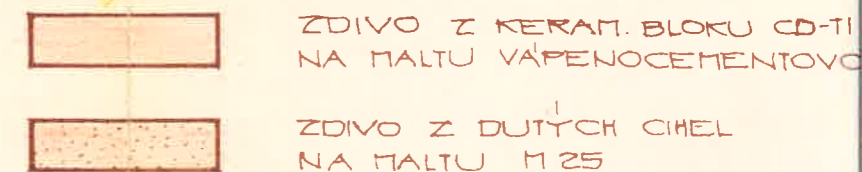 ZDIVO Z KERAM. BLOKU CD-TI
NA MALTU VÁPENOCEMENTOVO
ZDIVO Z DUTÝCH CIHEL
NA MALTU M 25